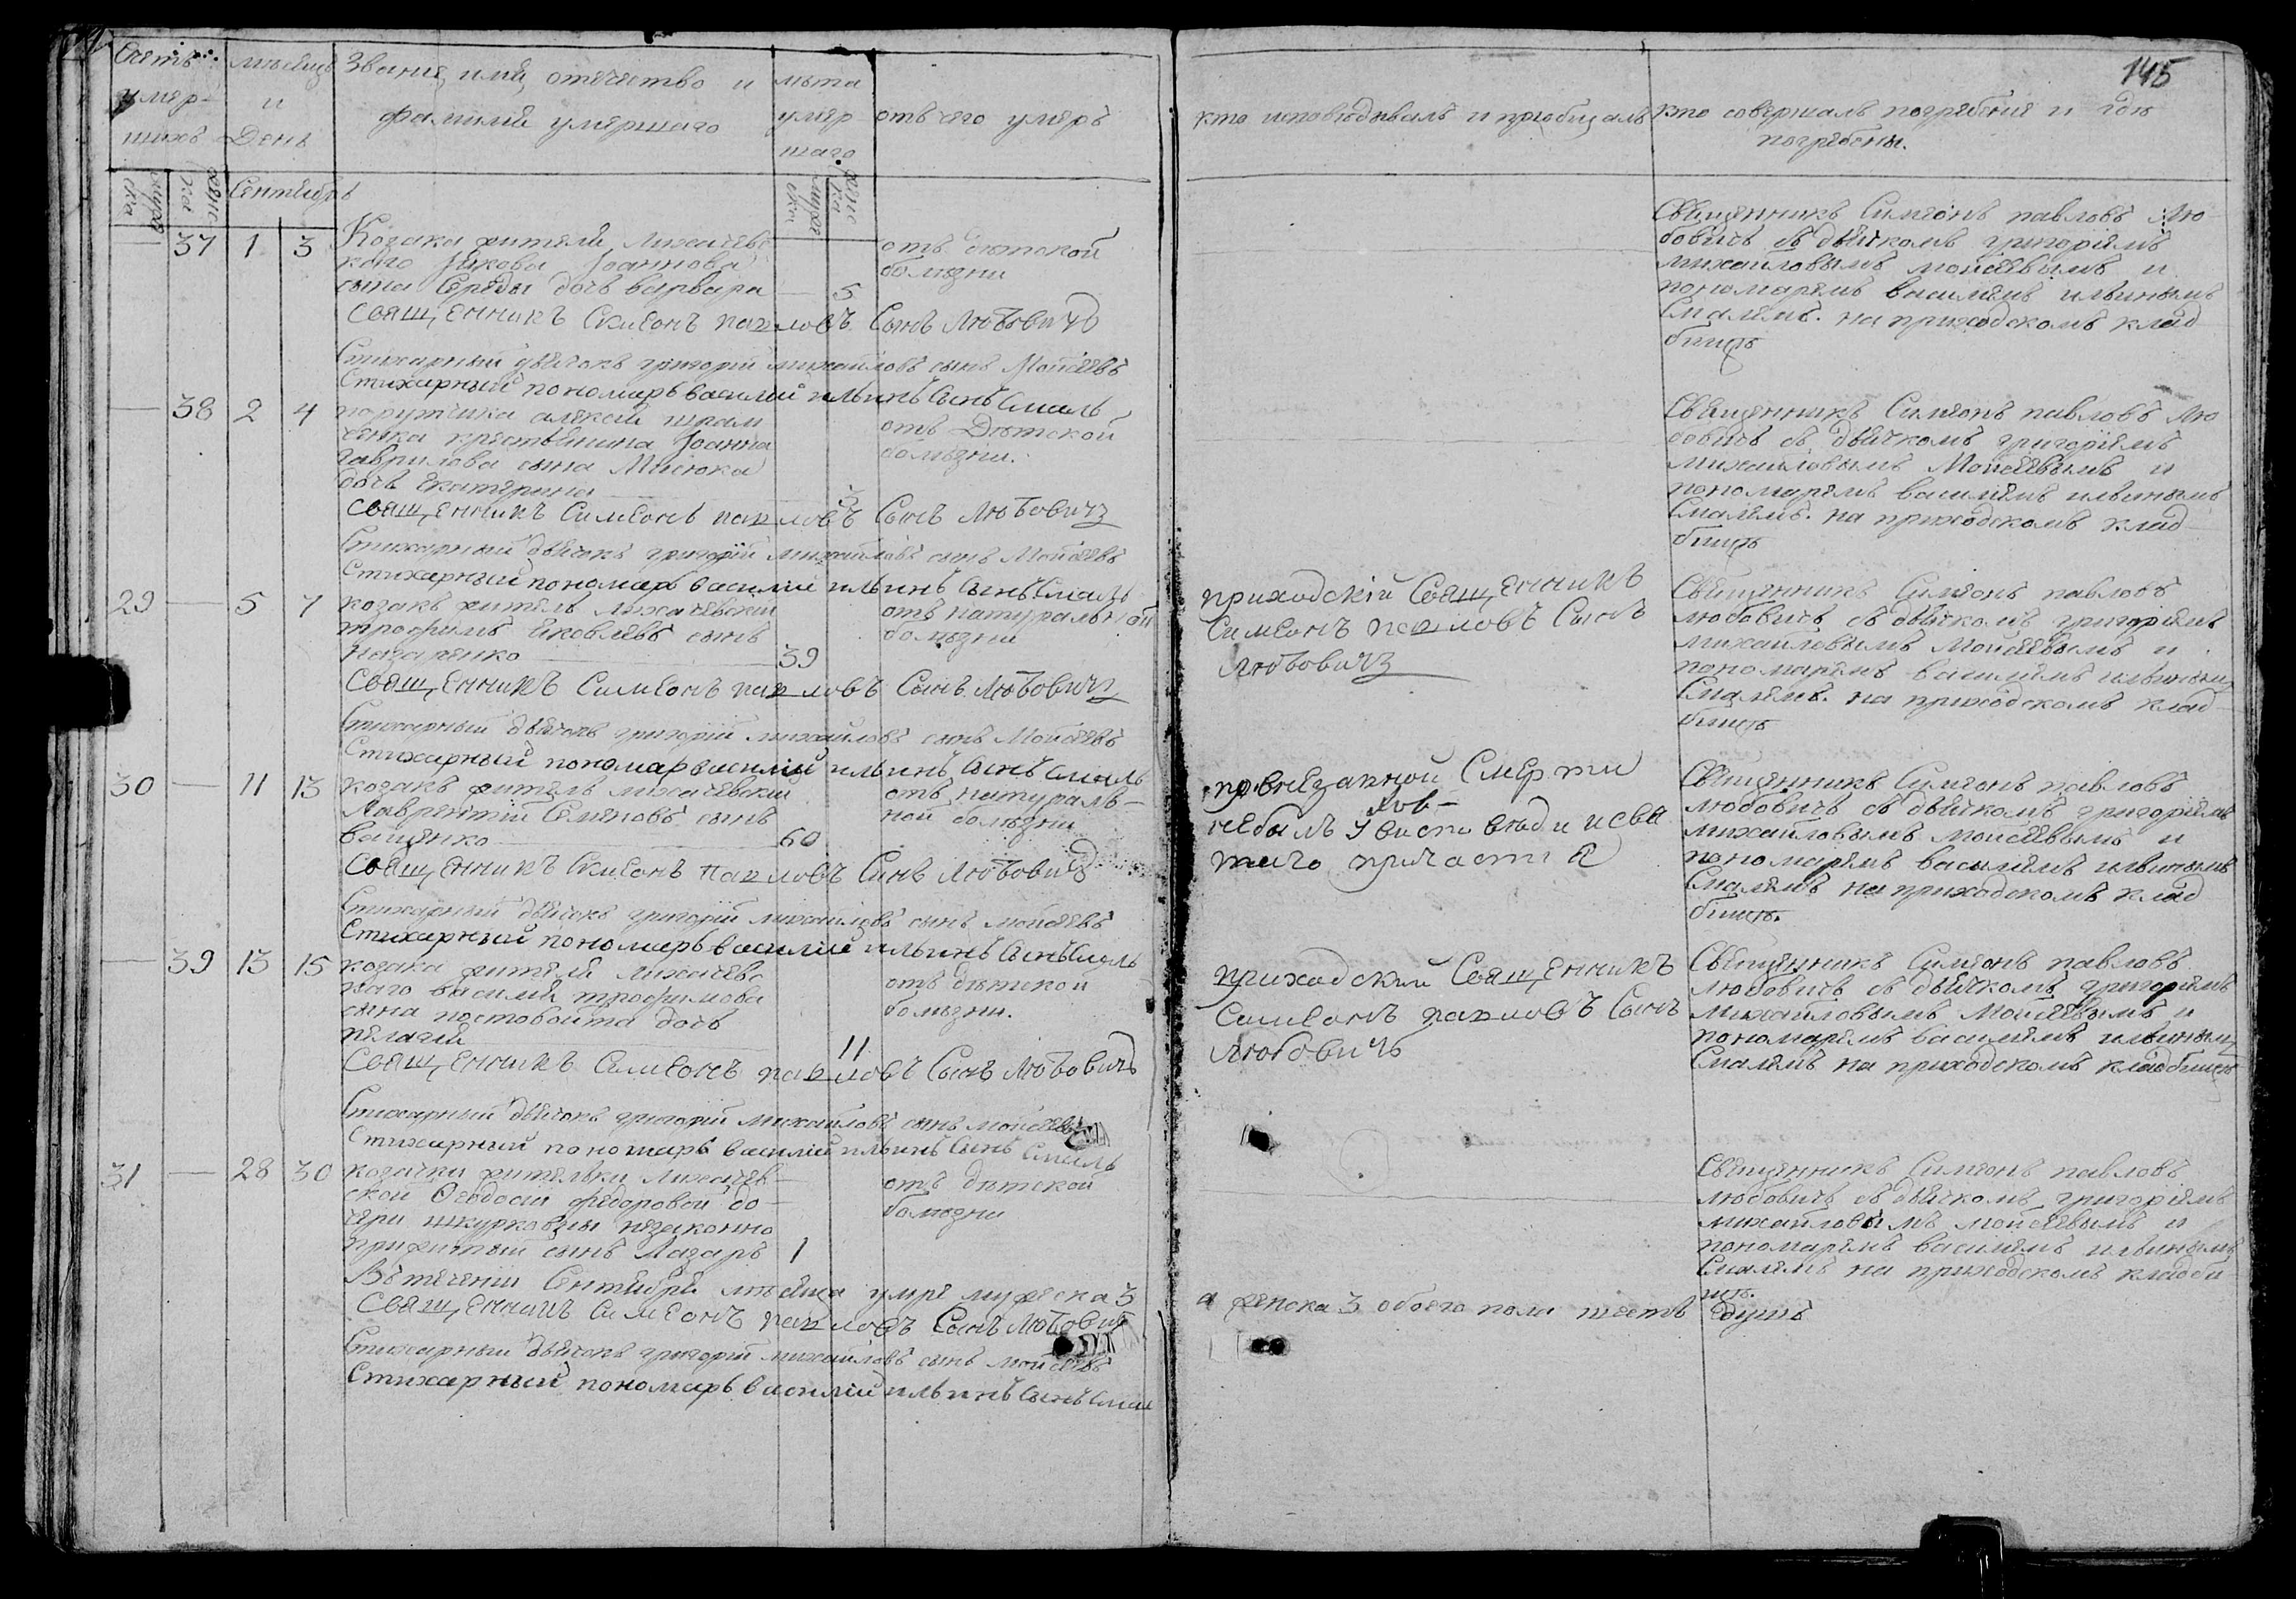 145
Счетъ умер-шихъ
мѣсяцъ и День
Званіе, имя, отечество и фамилія умершаго
лѣта умер шаго
отъ чего умеръ
кто исповѣдывалъ и пріобщалъ
кто совершалъ погребеніе и гдѣ погребены.
муже ска
женс ка
Сентябрь
муже ска
женс ка
37 1 3
Козака жителя лихачевс
кого Якова Іоаннова
сына Середы дочь варвара 5
отъ дѣтской
болѣзни
Священникъ Симеонъ павловъ Любовичъ съ дьячкомъ григоріемъ
михайловымъ мойсеевымъ и
пономаремъ василіемъ ильинымъ
Смалемъ. на приходскомъ клад
бищѣ
Священникъ Симеонъ павловъ Сынъ Любовичъ
Стихарный дьячокъ григорій михайловъ сынъ Мойсеевъ
Стихарный пономарь василій ильинъ Сынъ Смаль
38 2 4
порутчика алексѣя
крестьянина Іоанна
гаврилова сына Мисюка
дочь Екатерина 3
отъ Дѣтской
болѣзни.
Священникъ Симеонъ павловъ Лю
бовичъ съ дьячкомъ григоріемъ
михайловымъ Мойсеевымъ и
пономаремъ василіемъ ильинымъ
Смалемъ. на приходскомъ клад
бищѣ
Священникъ Симеонъ павловъ Сынъ Любовичъ
Стихарный дьячокъ григорій михайловъ сынъ Мойсеевъ
Стихарный пономарь василій ильинъ Сынъ Смаль
29 5 7
козакъ житель лихачевскій
трофимъ Яковлевъ сынъ
Назаренко 39
отъ натуральной
болѣзни
приходскій Священникъ
Симеонъ павловъ Сынъ
Любовичъ
Священникъ Симеонъ павловъ
любовичъ съ дьячкомъ григоріемъ
михайловымъ Мойсеевымъ и
пономаремъ василіемъ ильинымъ
Смалемъ. на приходскомъ клад
бищѣ
Священникъ Симеонъ павловъ Сынъ Любовичъ
Стихарный дьячокъ григорій михайловъ сынъ Мойсеевъ
Стихарный пономарь василій ильинъ Сынъ Смаль
30 11 13
козакъ житель лихачевскій
Лаврентій Семеновъ сынъ
ващенко 60
отъ натураль-
ной болѣзни
по внезапной Смерти
небылъ
причастія
Священникъ Симеонъ павловъ
любовичъ съ дьячкомъ григоріемъ
михайловымъ мойсеевымъ и
пономаремъ василіемъ ильинымъ
Смалемъ на приходскомъ клад
бищѣ.
Священникъ Симеонъ Павловъ Сынъ Любовичъ
Стихарный дьячокъ григорій михайловъ сынъ мойсеевъ
Стихарный пономарь василій ильинъ Сынъ Смаль
39 13 15
козака жителя лихачевс
каго василія трофимова
сына постовойта дочь
пелагія 11
отъ дѣтской
болѣзни.
приходскій Священникъ
Симеонъ павловъ Сынъ
Любовичъ
Священникъ Симеонъ павловъ
Любовичъ съ дьячкомъ григоріемъ
Михайловымъ Мойсеевымъ и
пономаремъ василіемъ ильинымъ
Смалемъ на приходскомъ кладбищѣ
Священникъ Симеонъ павловъ Сынъ Любовичъ
Стихарный дьячокъ григорій Михайловъ сынъ мойсеевъ
Стихарный пономарь василій ильинъ Сынъ Смаль
31 28 30
козачки жительки лихачев-
ской Феодосіи федоровой до-
чери шкурковны незаконно
прижитый сынъ Лазарь 1
отъ дѣтской
болѣзни
Священникъ Симеонъ павловъ
любовичъ съ дьячкомъ григоріемъ
михайловымъ мойсеевымъ и
пономаремъ василіемъ ильинымъ
Смалемъ на приходскомъ кладби
щѣ.
Въ теченіи Сентября мѣсяца умре мужеска 3
а женска 3 обоего пола шесть душъ
Священникъ Симеонъ павловъ Сынъ Любовичъ
Стихарный дьячокъ григорій михайловъ сынъ мойсеевъ
Стихарный пономарь василій ильинъ Сынъ Смаль